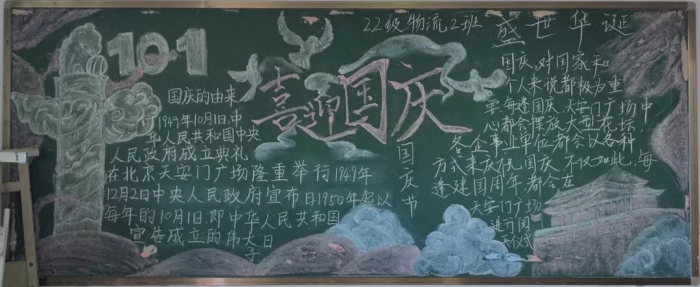 22级物流2班
10.1
喜迎国庆
国庆节
国庆的由来
1949年10月1日,中
华人民共和国中央
人民政府成立典礼
在北京天安门广场隆重举行 1949年
12月2日中央人民政府宣布自1950年起以
每年的10月1日即中华人民共和国
宣告成立的伟大日
子
盛世华诞
国庆,对国家和
个人来说都极为重
要每逢国庆,天安门广场中
心都会摆放大型花坛,
各企事业单位都会以各种
方式来庆祝国庆,不仅如此,每
逢建国周年,都会在
天安门广场
进行阅
兵仪式